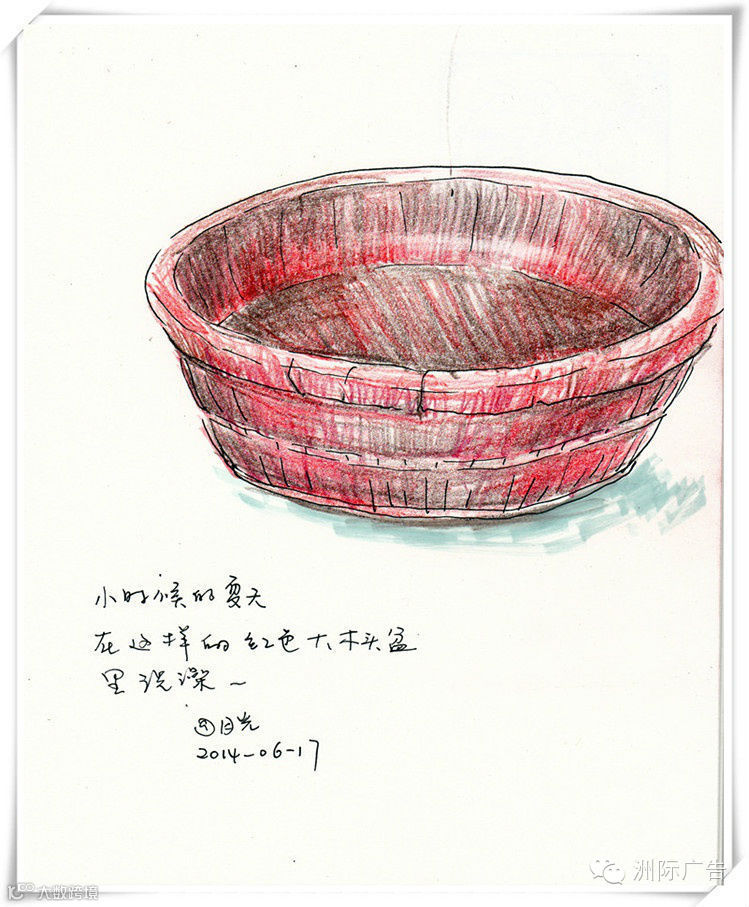 小时候的夏天
在这样的红色大木头盆
里洗澡~
目光
2014-06-17
洲际广告
大数跨境